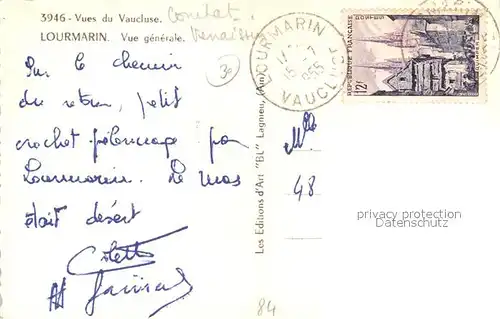 3946 - Vues du Vaucluse.
Comtat
Venaissin
LOURMARIN. Vue générale.
30
Sur le chemin
du retour, petit
crochet pèlerinage par
Lourmarin. Le mas
était désert
Colette
LOURMARIN
15 -7
1955
VAUCLUSE
REPUBLIQUE FRANÇAISE
POSTES
12F
QUIMPER
Les Editions d'Art "BL" Lagnieu, (Ain)
Mlle
48
privacy protection
Datenschutz
84